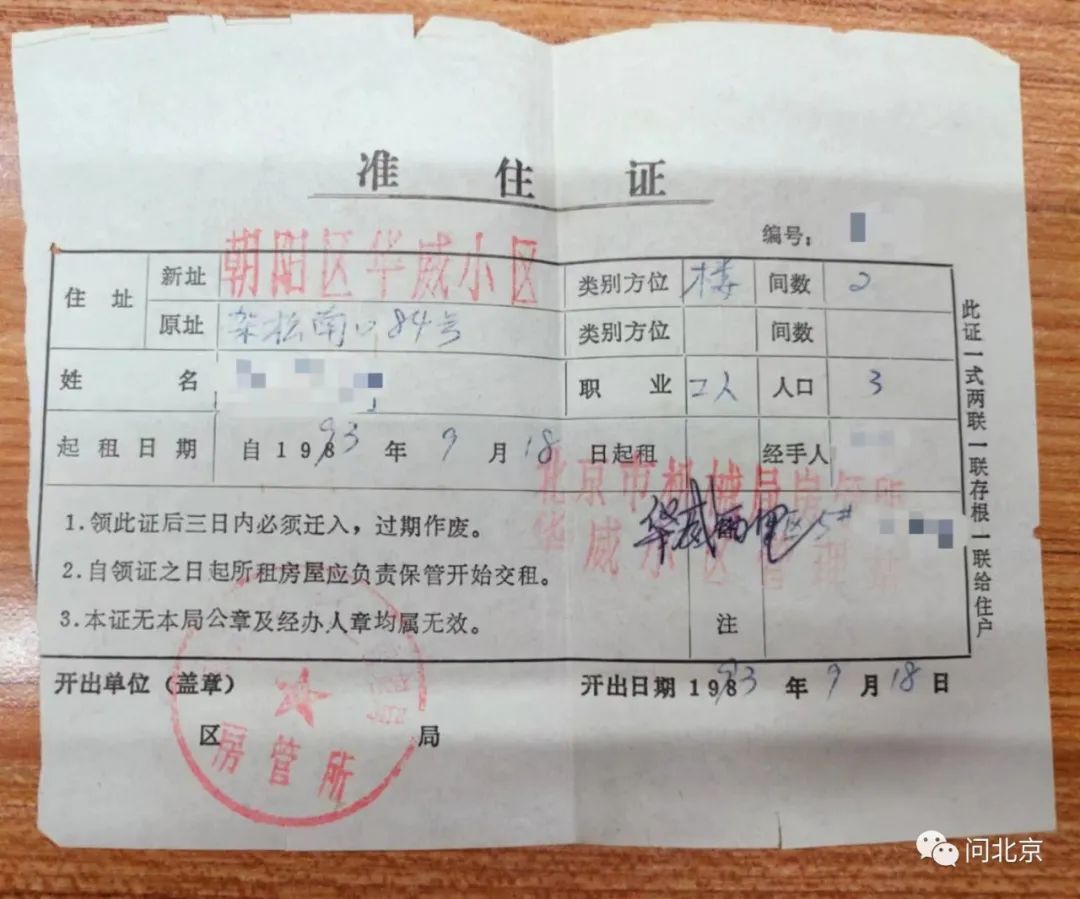 准住证
编号：
住址 新址 朝阳区华威小区 类别方位 楼 间数 2
原址 架松南口84号 类别方位 间数
姓名 职业 工人 人口 3
起租日期 自1993年9月18日起租 经手人
北京市机械局房管所
华威小区管理站
华威西里 5#
1.领此证后三日内必须迁入，过期作废。
2.自领证之日起所租房屋应负责保管开始交租。
3.本证无本局公章及经办人章均属无效。
注
此证一式两联一联存根一联给住户
开出单位（盖章） 开出日期 1993年9月18日
区 局
房管所
问北京